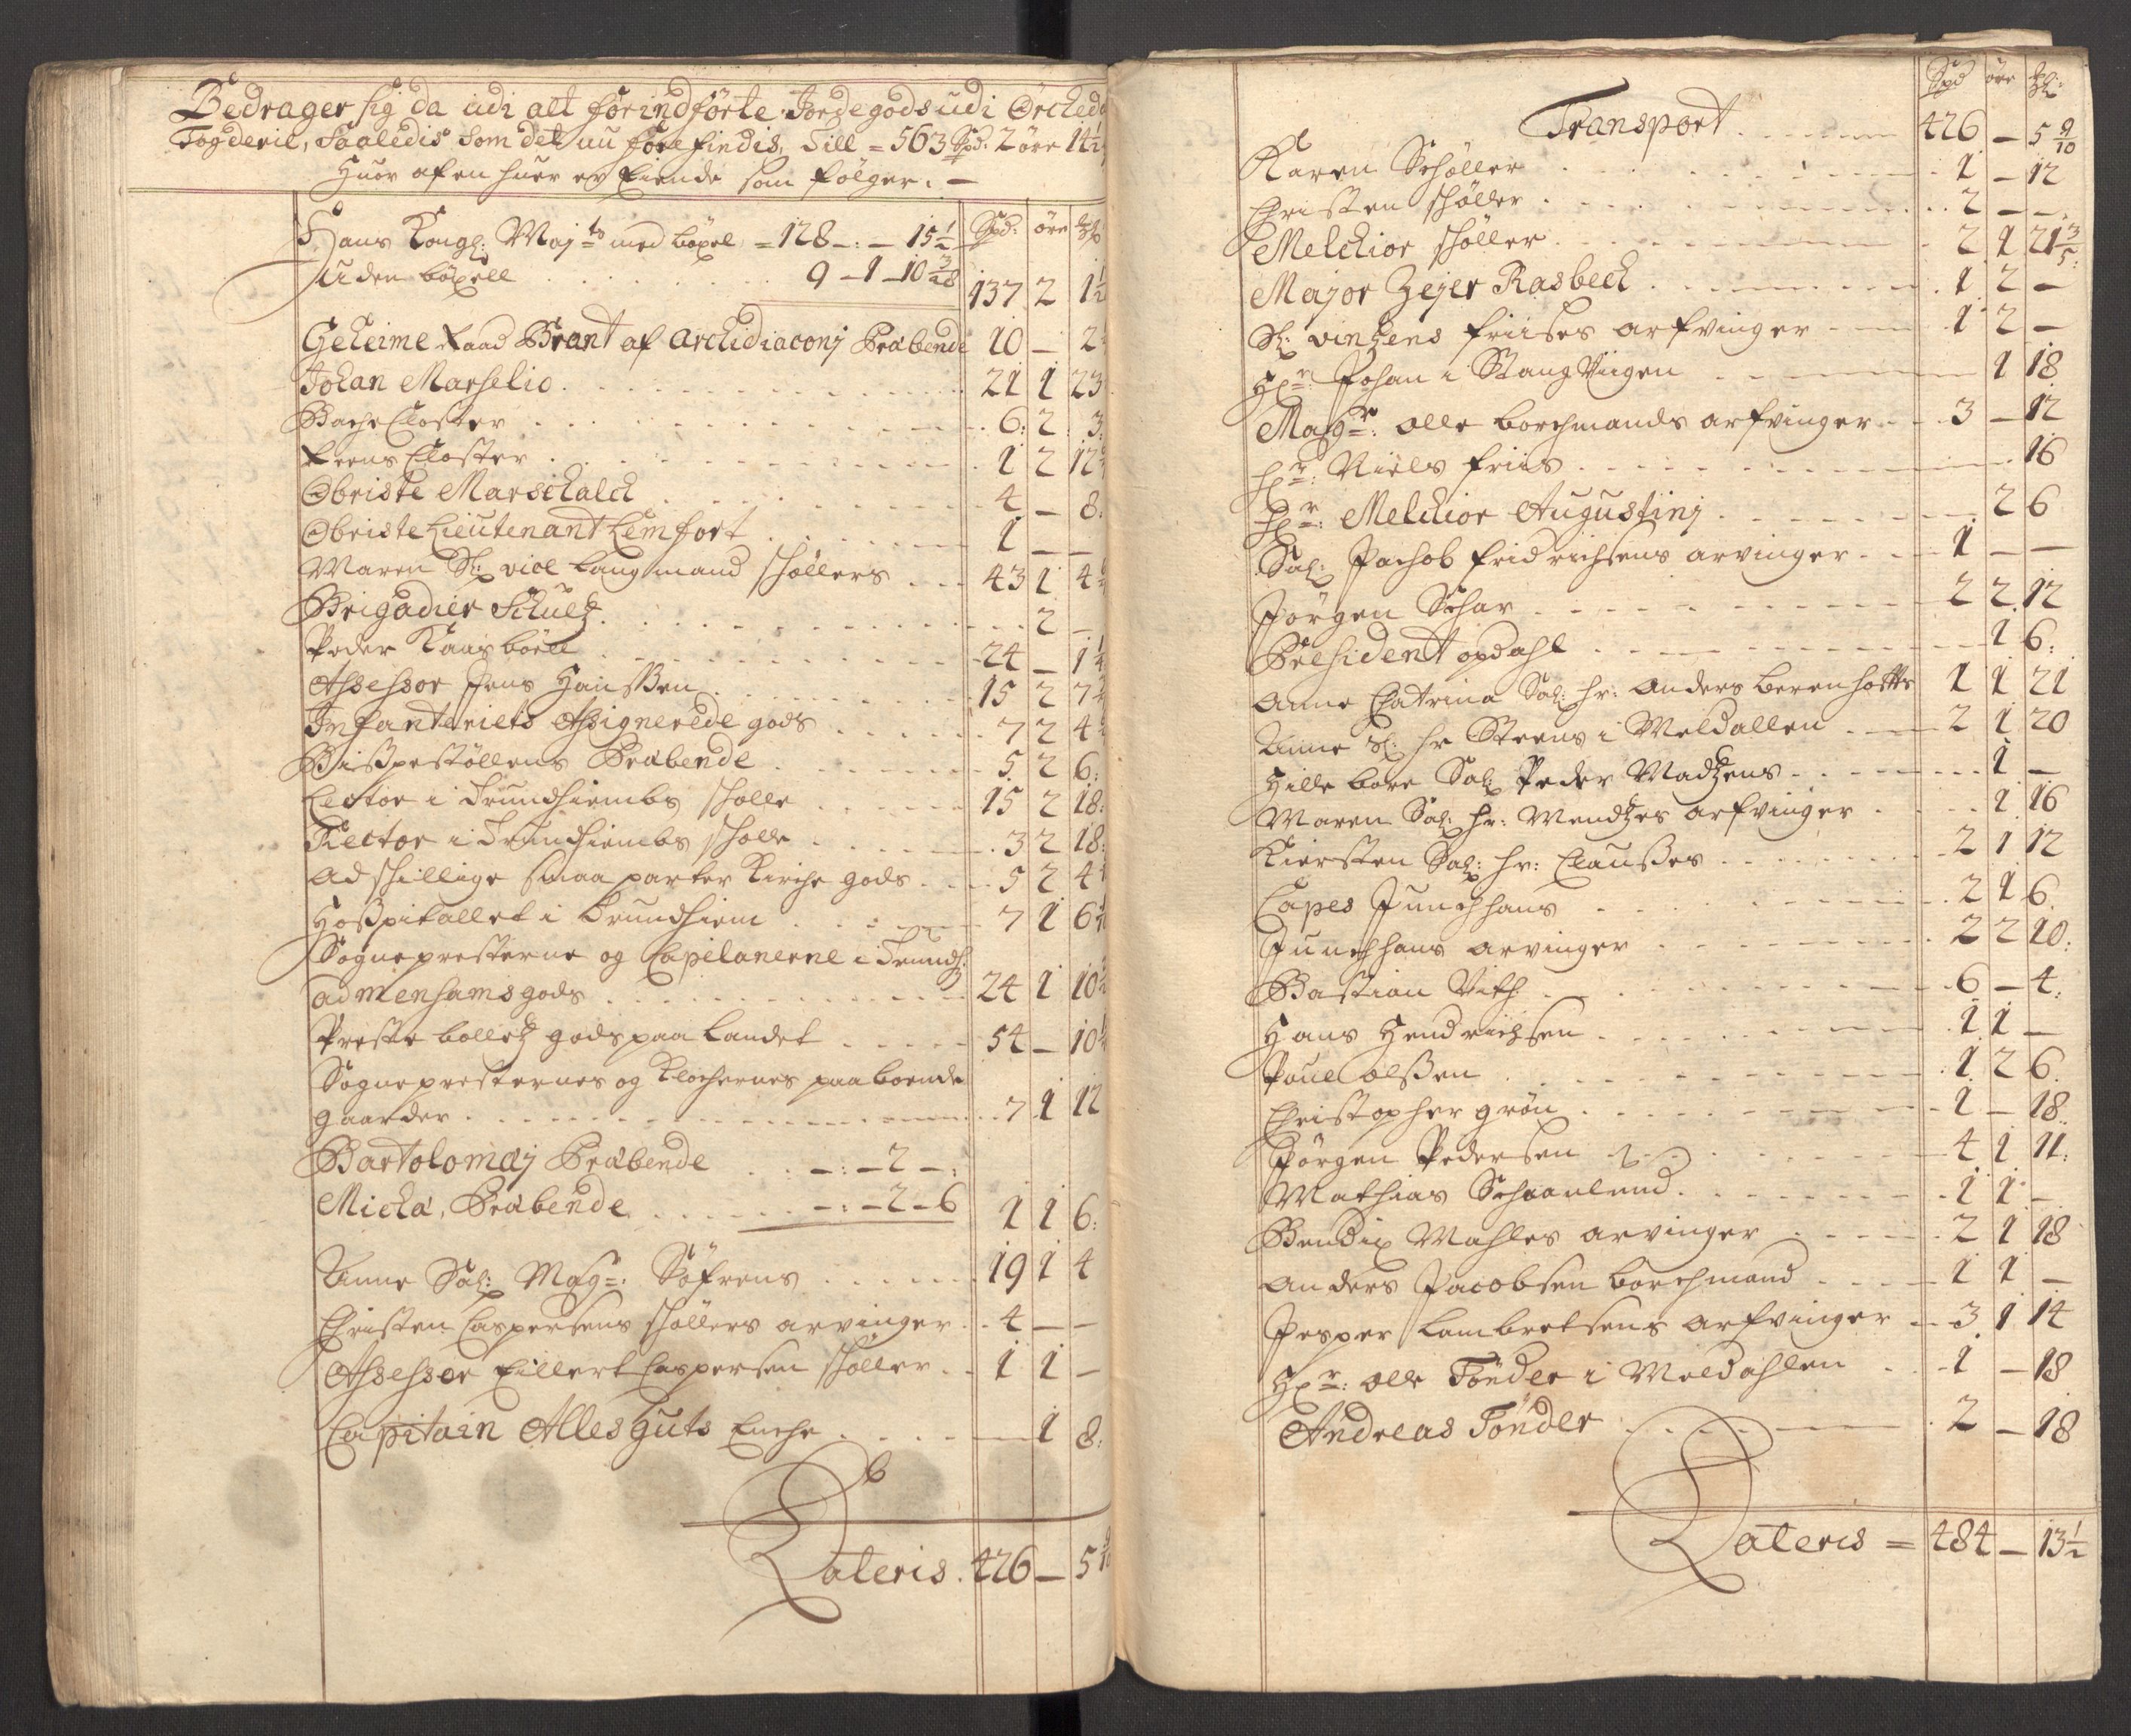 Bedrager sig da udi alt forindförte Jordegods udi Örckeda
Fogderie, Saaledis Som det nu forefindis, Till = 563 Spd: 2 öre 14½
Huor af en huer er Eiende som følger. —
Spd: öre
Hans Kongl: Mayts med böxel = 128 — : — 15½
uden böxell . . . 9 — 1 — 10 3/28 137 2 1½
Geheime Raad Brant af Archidiaconj Præbende 10 — 2
Johan Marselio . . . 21 1 23
Bache Closter . . . 6: 2 3:
Reens Closter . . . 1 2 12
Obriste Marschalch . . . 4 — 8:
Obriste Lieutenant Lemfort . . . 1 — —
Maren Sl: vice Laugmand Schøllers . . . 43 1 4
Brigadier Schultz . . . 2 —
Peder Kaasbøell . . . 24 — 1¼
Assessor Jens Hanssen . . . 15 2 7
Infanteriets Assignerede gods . . . 7 2 4
Bisspestollens Præbende . . . 5 2 6:
Lector i Trundhiembs Scholle . . . 15 2 18:
Rector i Trundhiembs Scholle . . . 3 2 18:
Adschillige smaa parter Kirche gods . . . 5 2 4
Hosspitallet i Trundhiem . . . 7 1 6
Sognepresterne og Capelanerne i Trundh:
ad mensams gods . . . 24 1 10
Preste bolletz gods paa Landet . . . 54 — 10
Sognepresternes og Klochernes paaboende
gaarder . . . 7 1 12
Bartolomæj Præbende . . . — : — 2 — :
Micha. Præbende . . . — : — 2 — 6 1 1 6:
Anne Sal: Magr: Söfrens . . . 19 1 4
Christen Caspersens Schøllers arvinger . . 4 — —
Assessor Eillert Caspersen Schøller . . 1 1 —
Capitain Allesguts Enche . . . — 1 8:
Lateris . 426 — 5
Spd öre
Transport . . . 426 — 5 9/10
Karen Schøller . . . 1 — 12
Christen Schøller . . . 2 — —
Melchior Schøller . . . 2 1 21 3/5
Major Zejer Rasbech . . . 1 2 —
Sl: vintzens friises arfvinger . . . 1 2 —
Hr: Johan i Stangviigen . . . 1 18
Magr: Olle borchmands arfvinger . . . 3 — 12
Hr: Niels friis . . . 16
Hr: Melchior Augustinj . . . 2 6
Sal: Jachob fridrichsens arvinger . . . 1 — —
Jörgen Schar . . . 2 2 12
Præsident opdahl . . . 1 6:
Anne Chatrina Sal: hr: Anders berenhoffts 1 1 21
Anne Sl: hr Steens i Meldallen . . . 2 1 20
Hilleborre Sal: Peder Madtzens . . . 1 —
Maren Sal: hr: Mendtzes arfvinger . . . 1 16
Kiersten Sal: hr: Clausses . . . 2 1 12
Capes Junchhans . . . 2 1 6.
Junchhans arvinger . . . 2 2 10:
Bastian Vith . . . 6 — 4:
Hans Hendrichsen . . . 1 1 —
Povel olssen . . . 1 2 6.
Christopher grön . . . 1 — 18.
Jörgen Pedersen . . . 4 1 11:
Mathias Schaanlund . . . 1 1 —
Bendix Mahles arvinger . . . 2 1 18
Anders Jacobsen borchmand . . . 1 1 —
Jesper Lambretsens arfvinger . . 3 1 14
Hr: Olle Tönder i Meldahlen . . . 1 — 18
Andreas Tönder . . . 2 — 18
Lateris = 484 — 13½